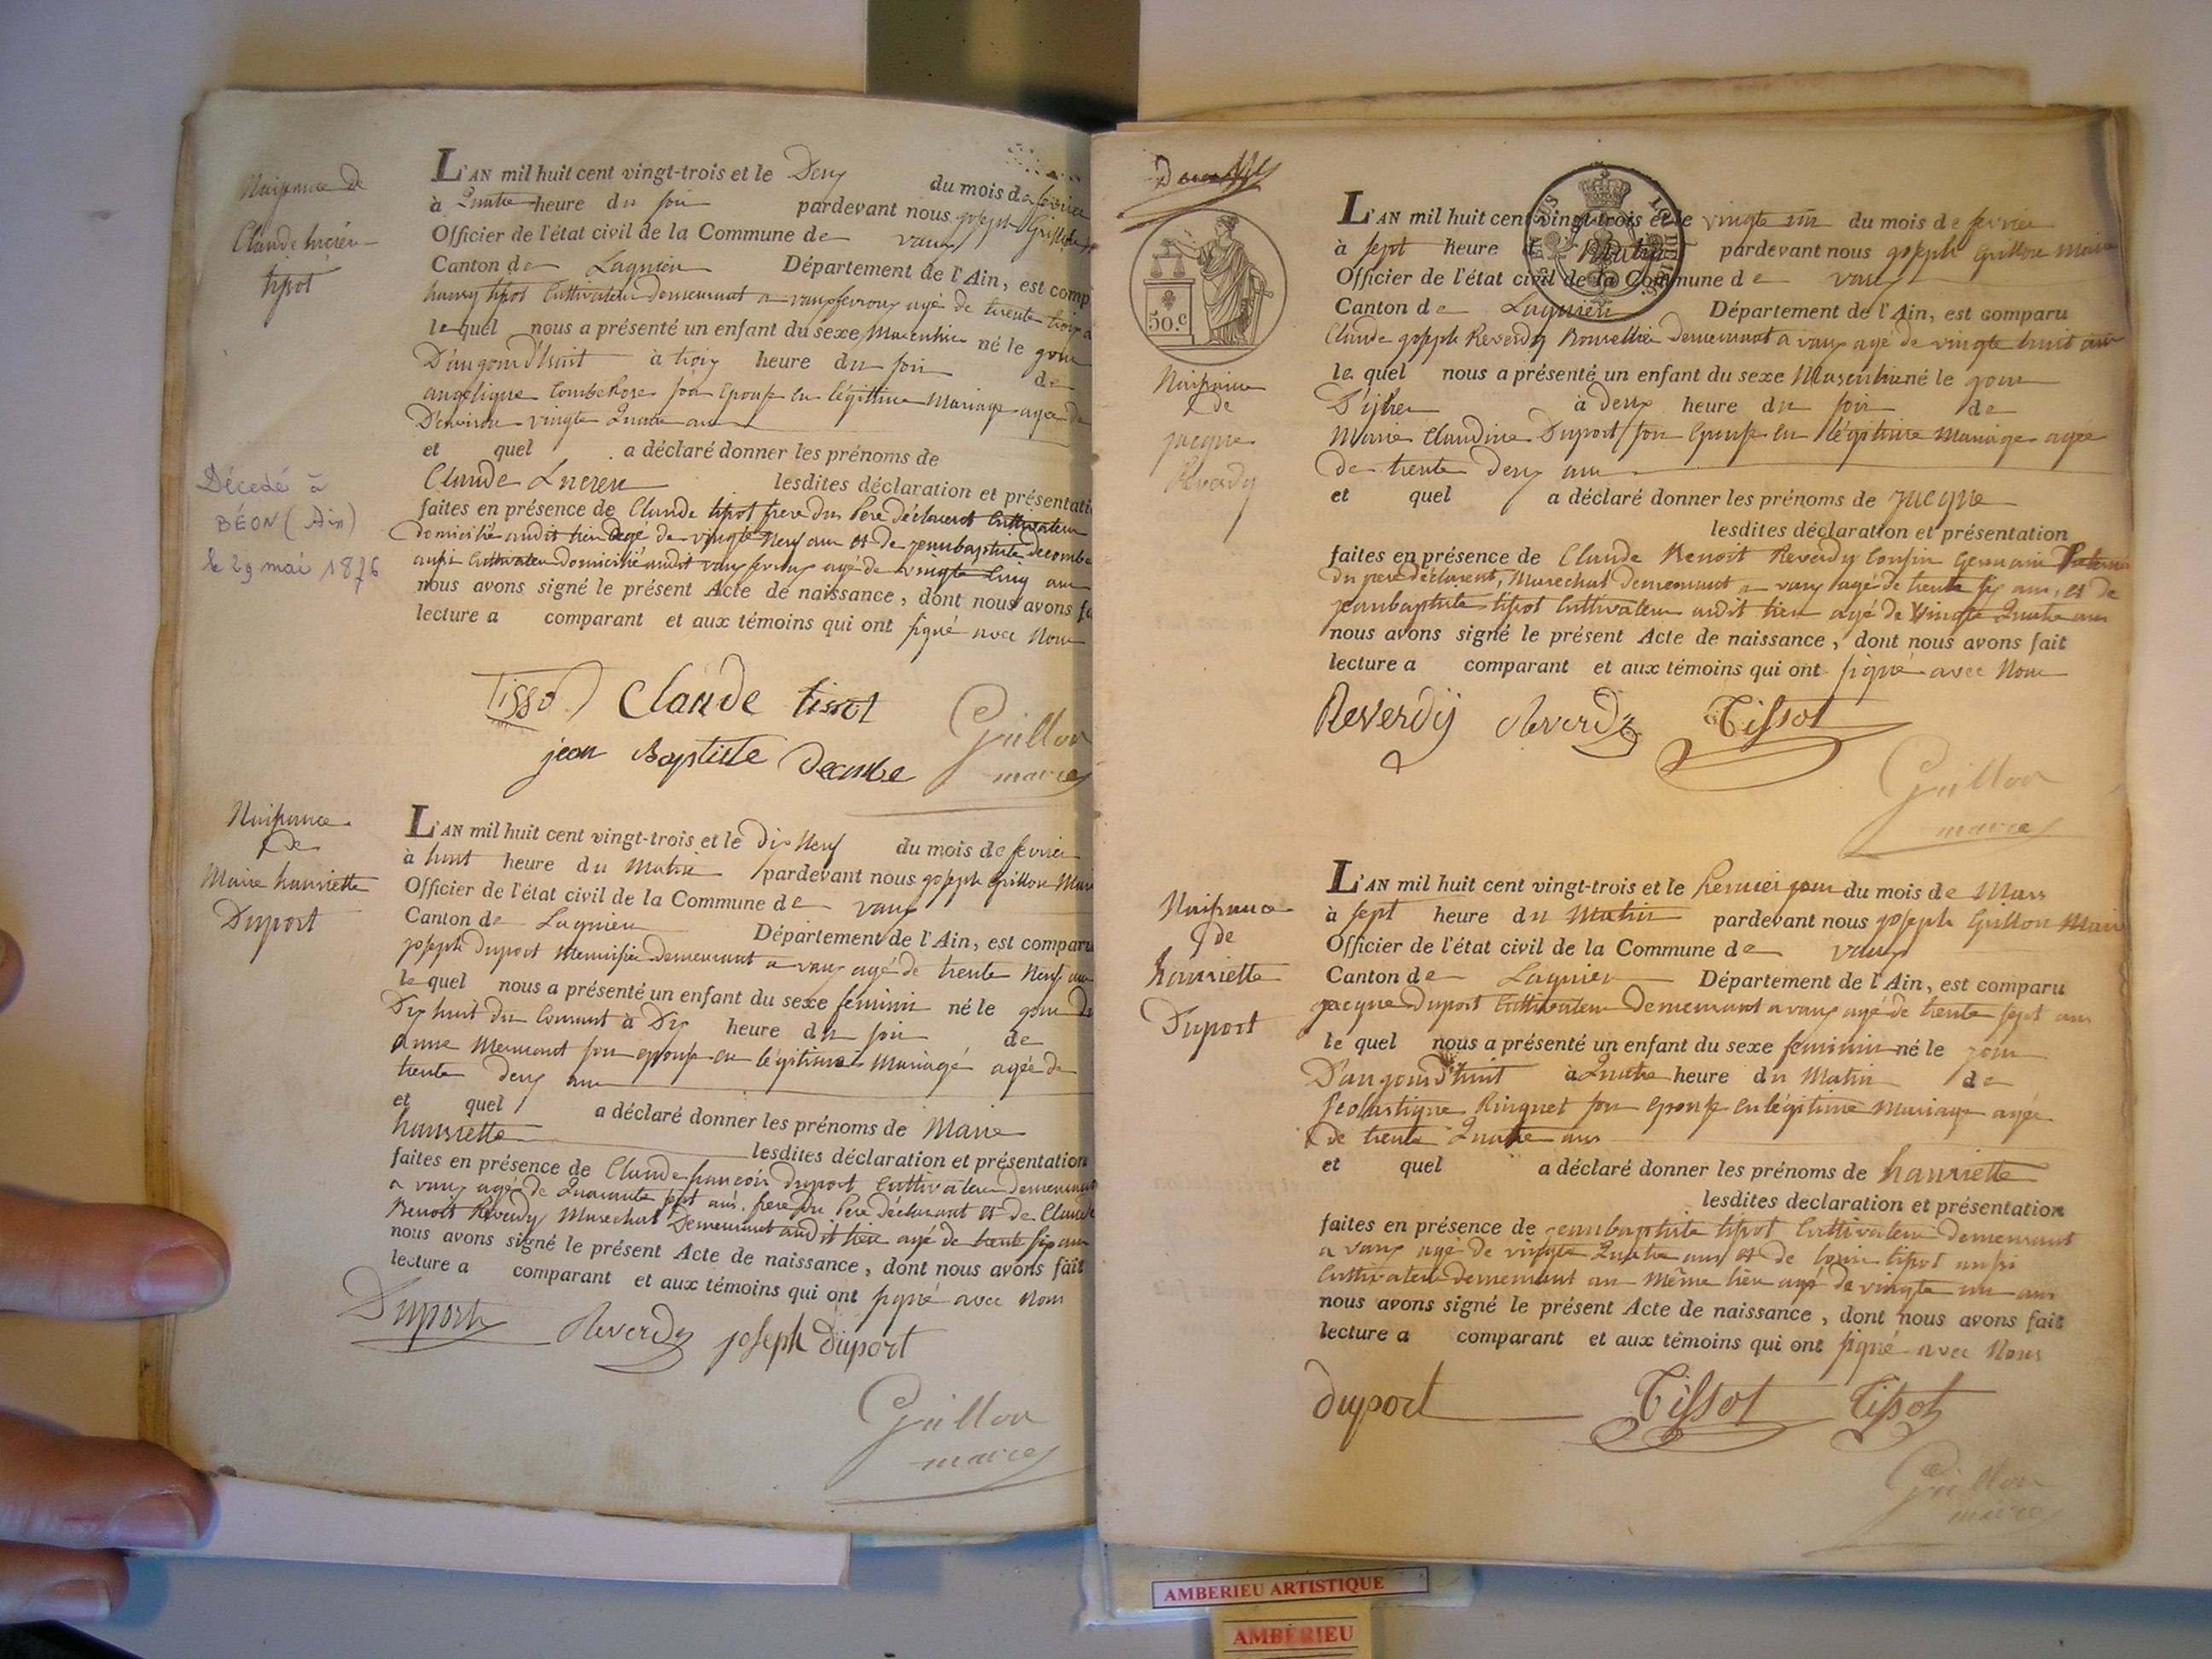 Naissance de
Claude lucien
tissot
L'AN mil huit cent vingt-trois et le Deux du mois de fevrier
à Quatre heure du soir pardevant nous joseph
Officier de l'état civil de la Commune de vaux
Canton de Lagnieu Département de l'Ain, est comp
tissot Cultivateur demeurant a vaux agé de trente trois
le quel nous a présenté un enfant du sexe Masculin né le jour
D'aujourd'huit à trois heure du soir de
angelique son Epouse en légittime Mariage agée de
D'environ vingte Quatre ans
et quel a déclaré donner les prénoms de
Claude Lucien lesdites déclaration et présentati
faites en présence de Claude tissot frere du Pere déclarent Cultivateur
domicilié audit lieu agé de vingte Neuf ans et de jeanbaptiste decombe
aussi Cultivateur domicilié audit vaux agé de vingte Cinq ans
nous avons signé le présent Acte de naissance, dont nous avons fa
lecture a comparant et aux témoins qui ont signé avec Nous
Décedé à
BÉON (Ain)
le 29 mai 1876
Tissot Claude tissot
jean Baptiste Decombe
Guillon
maire
Naissance
de
Marie hanriette
Duport
L'AN mil huit cent vingt-trois et le dix Neuf du mois de fevrier
à huit heure du Matin pardevant nous joseph Guillon Mair
Officier de l'état civil de la Commune de vaux
Canton de Lagnieu Département de l'Ain, est comparu
joseph Duport demeurant a vaux agé de trente Neuf ans
le quel nous a présenté un enfant du sexe feminin né le jour De
Dix huit du Courant à Dix heure du soir de
anne son epouse en légitime Mariagé agée de
trente deux ans
et quel a déclaré donner les prénoms de Marie
hanriette lesdites déclaration et présentation
faites en présence de Claude francois Duport Cultivateur demeurant
a vaux agé de Quarante sept ans, frere du Pere déclarant et de Claude
Benoit Reverdy Marechal Demeurant audit lieu agé de trente six ans
nous avons signé le présent Acte de naissance, dont nous avons fait
lecture a comparant et aux témoins qui ont signé avec Nous
Duport Reverdy joseph duport
Guillon
maire
50.c
Naissance
de
jacque
Reverdy
L'AN mil huit cent vingt-trois et le vingte six du mois de fevrier
à sept heure du Matin pardevant nous joseph Guillon Maire
Officier de l'état civil de la Commune de vaux
Canton de Lagnieu Département de l'Ain, est comparu
Claude joseph Reverdy demeurant a vaux agé de vingte huit ans
le quel nous a présenté un enfant du sexe Masculin né le jour
D'ijher à deux heure du soir de
Marie Claudine Duport son Epouse en légitime Mariage agée
de trente deux ans
et quel a déclaré donner les prénoms de jacque
lesdites déclaration et présentation
faites en présence de Claude Benoit Reverdy Cousin Germain Paternel
du pere déclarent, Marechal demeurant a vaux agé de trente six ans, et de
jeanbaptiste tissot Cultivateur audit lieu agé de vingte Quatre ans
nous avons signé le présent Acte de naissance, dont nous avons fait
lecture a comparant et aux témoins qui ont signé avec Nous
Reverdÿ Reverdy Tissot
Guillon
maire
Naissance
de
hanriette
Duport
L'AN mil huit cent vingt-trois et le Premier jour du mois de Mars
à sept heure du Matin pardevant nous joseph Guillon Mair
Officier de l'état civil de la Commune de vaux
Canton de Lagnieu Département de l'Ain, est comparu
jacque Duport Cultivateur Demeurant a vaux agé de trente sept ans
le quel nous a présenté un enfant du sexe feminin né le jour
D'aujourd'huit à Quatre heure du Matin de
scolastique Ringuet son Epouse en légitime Mariage agée
de trente Quatre ans
et quel a déclaré donner les prénoms de hanriette
lesdites declaration et présentation
faites en présence de jeanbaptiste tissot Cultivateur demeurant
a vaux agé de vingte Quatre ans et de tissot aussi
Cultivateur demeurant au Même lieu agé de vingte un ans
nous avons signé le présent Acte de naissance, dont nous avons fait
lecture a comparant et aux témoins qui ont signé avec Nous
duport Tissot Tissot
Guillon
maire
AMBERIEU ARTISTIQUE
AMBÉRIEU